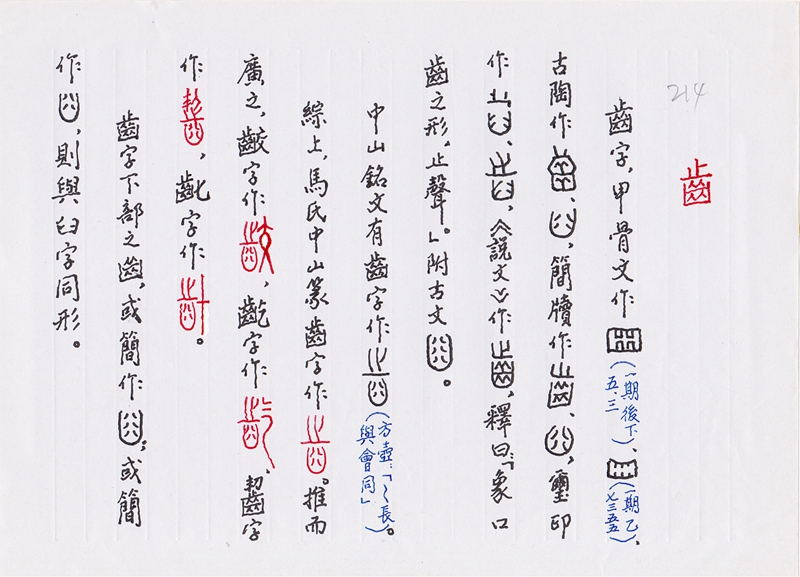 214
齒字，甲骨文作（一期後下五．三）、（一期乙七三五五）、
古陶作、，簡牘作、，璽印
作、，《說文》作，釋曰：「象口
齒之形，止聲。」附古文。
中山銘文有齒字作（方壺：「〻長與會同」）。
綜上，馬氏中山篆齒字作。推而
廣之，齩字作，齕字作，齧字
作，齔字作。
齒字下部之，或簡作，或簡
作，則與臼字同形。